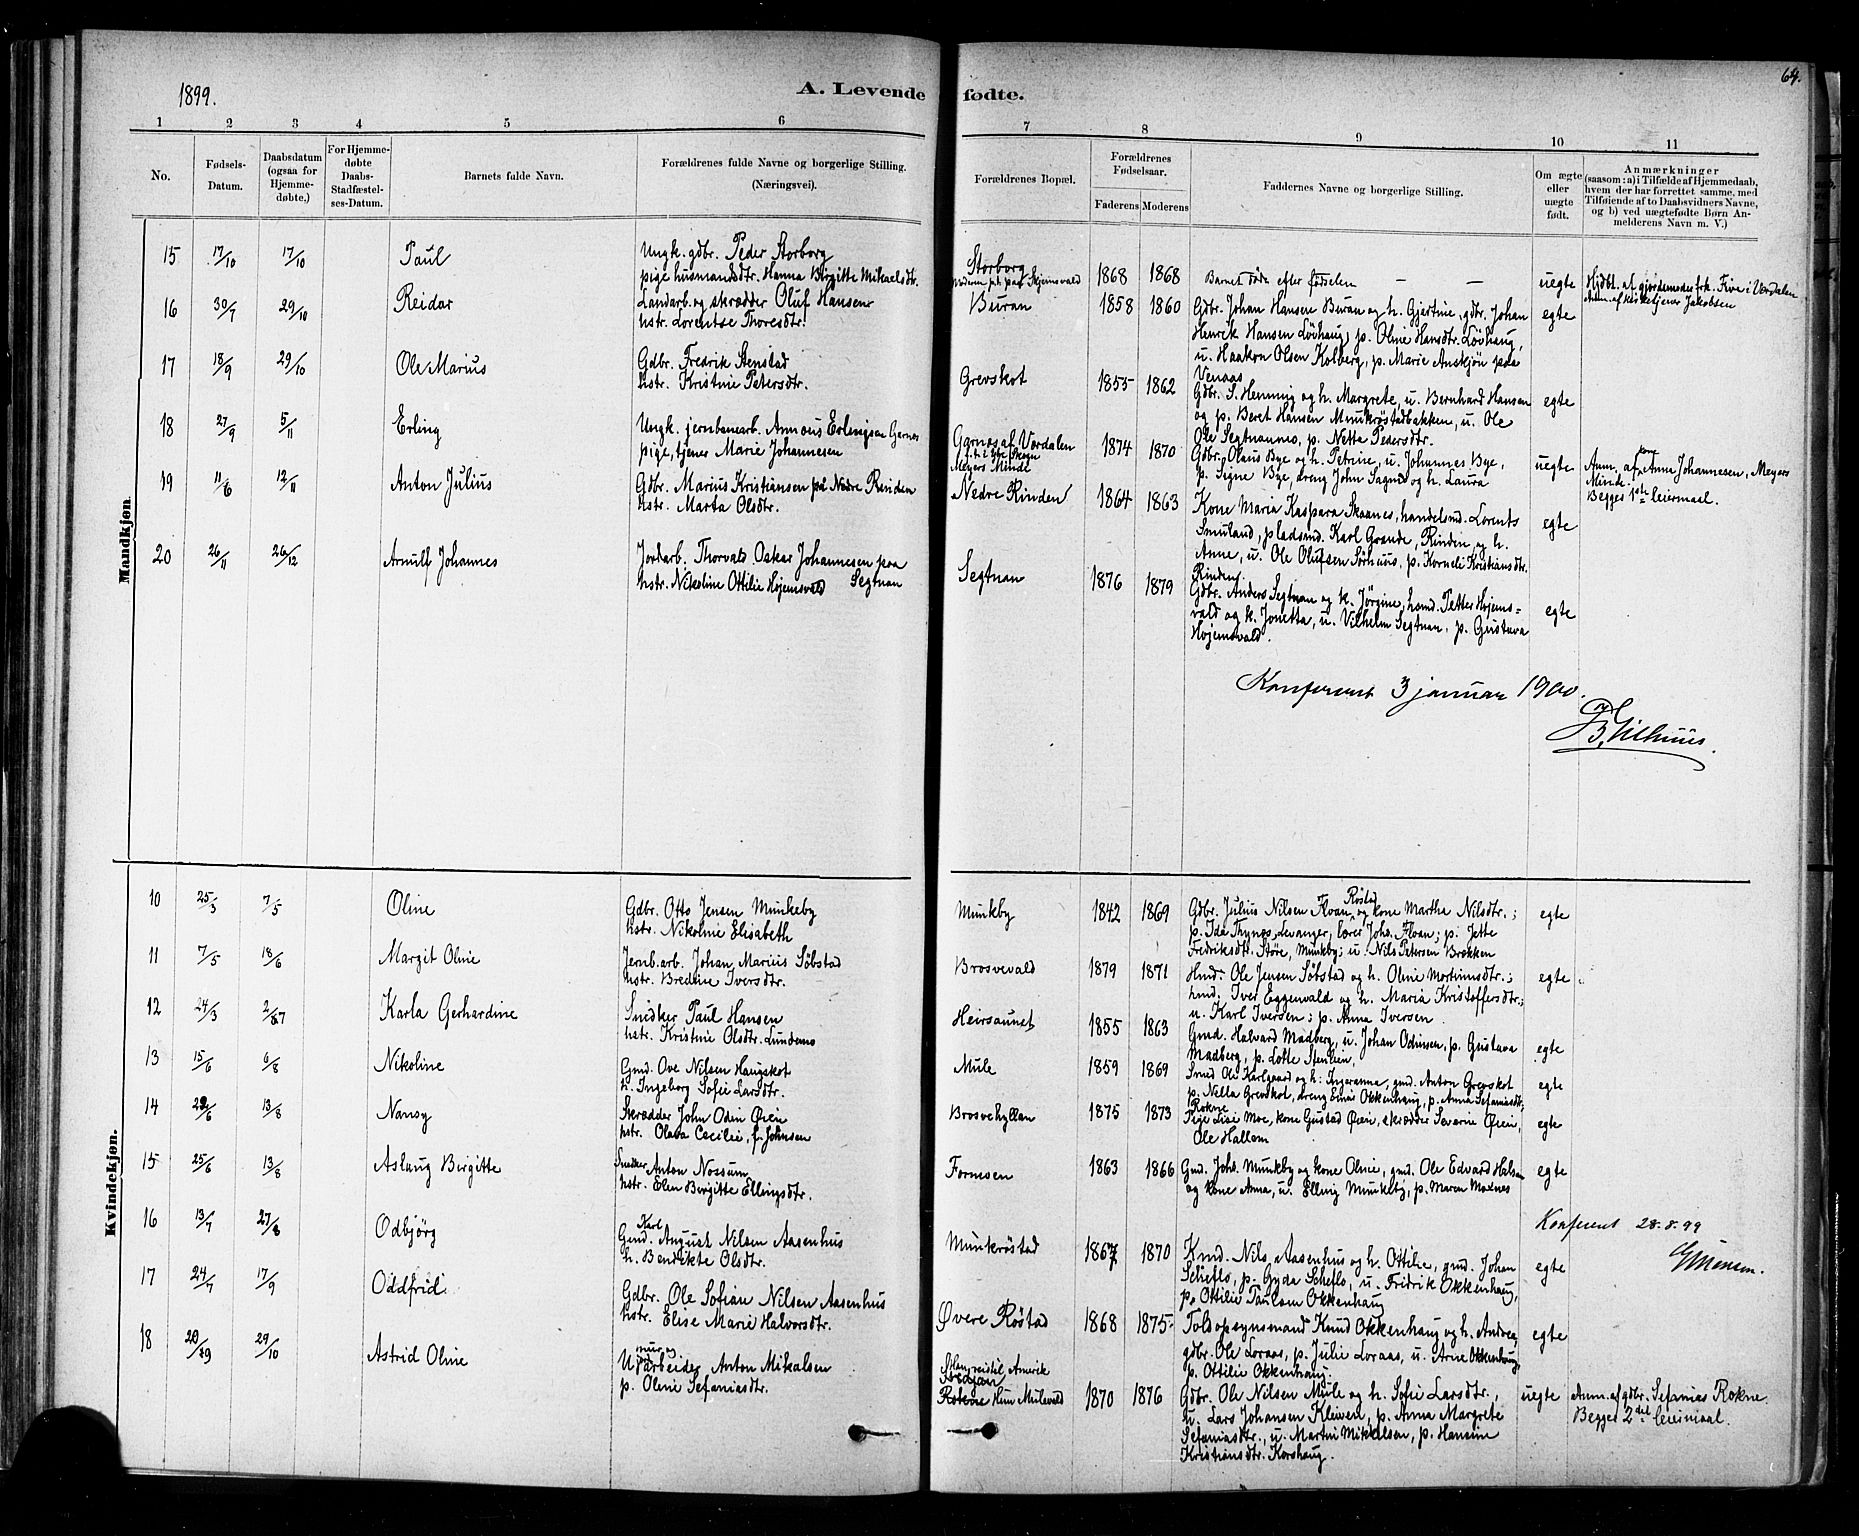 1899.
A. Levende fødte.
64.
1 2 3 4 5 6 7 8 9 10 11
No.
Fødsels-Datum.
Daabsdatum (ogsaa for Hjemme-døbte.)
For Hjemme-døbte Daabs-Stadfæstel-ses-Datum.
Barnets fulde Navn.
Forældrenes fulde Navne og borgerlige Stilling.
(Næringsvei).
Forældrenes Bopæl.
Forældrenes Fødselsaar.
Faderens Moderens
Faddernes Navne og borgerlige Stilling.
Om ægte eller uægte født.
Anmærkninger
(saasom: a) i Tilfælde af Hjemmedaab,
hvem der har forrettet samme, med
Tilføiende af to Daabsvidners Navne,
og b) ved uægtefødte Børn An-
melderens Navn m. V.)
Mandkjøn.
15 17/10 17/10 Paul
Ungk. gdbr. Peder Storborg
pige husmandsdtr. Hanna Birgitte Mikaelsdtr.
Storborg
1868 1868
Barnet døde efter fødselen — —
uegte
Hjdbt. af gjordemoder frk. Five i Værdalen
Anm. af kirketjener Jakobsen
16 30/7 29/10 Reidar
Landarb. og skrædder Oluf Hansen
hstr. Lorentse Thoresdtr.
Buran
1858 1860
Gdbr. Johan Hansen Buran og h. Gjertine, gdbr. Johan
Henrik Hansen Løvhaug, p. Oline Hansdtr. Løvhaug,
u. Haakon Olsen Kolberg, p. Marie Anskjøn paa
Venaas
egte
17 18/9 29/10 Ole Marius
Gdbr. Fredrik Stenstad
hstr. Kristine Petersdtr.
Grevskot
1855 1862
Gdbr. S. Henning og h. Margrete, u. Bernhard Hansen
og p. Beret Hansen Munkrøstadbakken, u. Ole
Ole Segtnanmo, p. Netta Pedersdtr.
egte
18 27/9 5/11 Erling
Ungk. jernbanearb. Annæus Erlingsen Garnes
pige, tjener Marie Johannesen
Garnæs af Værdalen
Meyers Minde
1874 1870
Gdbr. Olaus Bye og h. Petrine, u. Johannes Bye,
p. Signe Bye, dreng John Sagmo og h. Laura
uegte
Anm. af kone Anna Johannesen, Meyers
Minde.
Begges 1ste leiermaal.
19 11/6 12/11 Anton Julius
Gdbr. Marius Kristiansen på Nedre Rinden
hstr. Marta Olsdtr.
Nedre Rinden
1864 1863
Kone Maria Kaspara Skaanes, handelsmd. Lorents
Smuland, pladsmd. Karl Grande, Rinden og h.
Anne, u. Ole Olufsen Sørhuus, p. Korneli Kristiansdtr.
Rinden.
egte
20 26/11 26/12 Arnulf Johannes
Jordarb. Thorvald Oskar Johannesen paa
hstr. Nikoline Ottilie Højemsvald Segtnan
Segtnan
1876 1879
Gdbr. Anders Segtnan og k. Jørgine, hsmd. Petter Højems-
vald og k. Jonetta, u. Vilhelm Segtnan, p. Gustava
Højemsvald.
egte
Konferent 3 januar 1900.
Kvindekjøn.
10 25/3 7/5 Oline
Gdbr. Otto Jensen Munkeby
hstr. Nikoline Elisabeth
Munkby
1842 1869
Røstad
Gdbr. Julius Nilsen Floan og kone Martha Nilsdtr.;
p. Ida Thynes, Levanger, lærer Johs. Floan; p. Jette
Fredriksdtr. Støre, Munkby; u. Nils Petersen Brekken
egte
11 7/5 18/6 Margit Oline
Jernb.arb. Johan Marius Søbstad
hstr. Bredine Iversdtr.
Brosvevald
1879 1871
Hmd. Ole Jensen Søbstad og h. Oline Mortinusdtr.;
hmd. Iver Eggenvald og h. Maria Kristoffersdtr.;
u. Karl Iversen; p. Anna Iversen
egte
12 24/3 2/7 Karla Gerhardine
Snedker Paul Hansen
hstr. Kristine Olsdtr. Lundemo
Heirsaunet
1855 1863
Gmd. Halvard Madberg, u. Johan Odinsen, p. Gustava
Madberg, p. Lotte Stenlein,
egte
13 15/6 6/8 Nikoline
Gmd. Ove Nilsen Haugskot
h. Ingeborg Sofie Larsdtr.
Mule
1859 1869
Smed Ole Karlgaard og h. Ingeranna, gmd. Anton Grevskot
p. Nella Grevskot, dreng Einar Okkenhaug, p. Anna Sefaniasdtr;
Rokne
egte
14 22/6 13/8 Nansy
Skrædder John Odin Øien
hstr. Olava Cecilie, f. Johnsen
Brosvehyllan
1875 1873
Pige Lise Moe, kone Gustad Øien, skrædder Severin Øien,
Ole Hallem
egte
15 25/6 13/8 Aslaug Birgitte
Snedker Anton Nossum
hstr. Elen Birgitte Ellingsdtr.
Fornesen
1863 1866
Gmd. Johs. Munkby og kone Oline, gmd. Ole Edvard Halsan
og kone Anna, u. Elling Munkeby, p. Maren Moxnes
egte
Konferent 28.8.99
16 13/7 27/8 Odbjørg
Karl
Gmd. August Nilsen Aasenhus
h. Benedikte Olsdtr.
Munkrøstad
1867 1870
Kmd. Nils Aasenhus og h. Ottilie, gmd. Johan
Scheflo, p. Gyda Scheflo, u. Fridrik Okkenhaug,
p. Ottilie Paulsen Okkenhaug
egte
17 24/7 17/9 Oddfrid
Gdbr. Ole Sofian Nilsen Aasenhus
hstr. Elise Marie Halvorsdtr.
Øvere Røstad
1868 1875
Toldopsynsmand Knud Okkenhaug og h. Andrea,
gdbr. Ole Loraas, p. Julie Loraas, u. Arne Okkenhaug,
p. Ottilie Okkenhaug.
egte
18 29/10 Astrid Oline
mur og
U. arbeider Anton Mikalsen
p. Oline Sefaniasdtr.
Rokne Hun Mulevald
1870 1876
Gdbr. Ole Nilsen Mule og h. Sofie Larsdtr.,
u. Lars Johansen Kleiven, p. Anna Margrete
Sefaniasdtr., u. Martin Mikkelsen, p. Hansine
Kristiansdtr. Korshaug.
uegte
Anm. af gdbr. Sefanias Rokne.
Begges 2det leiermaal.